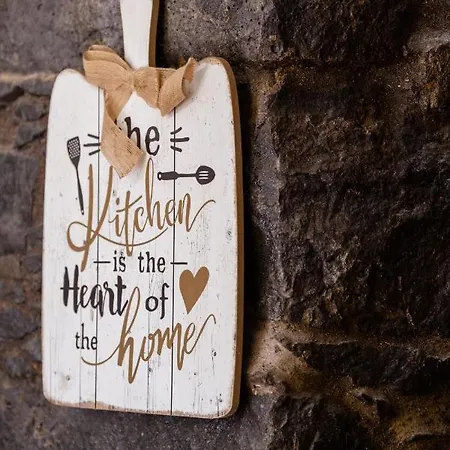 he
Kitchen
is the
Heart of
the home